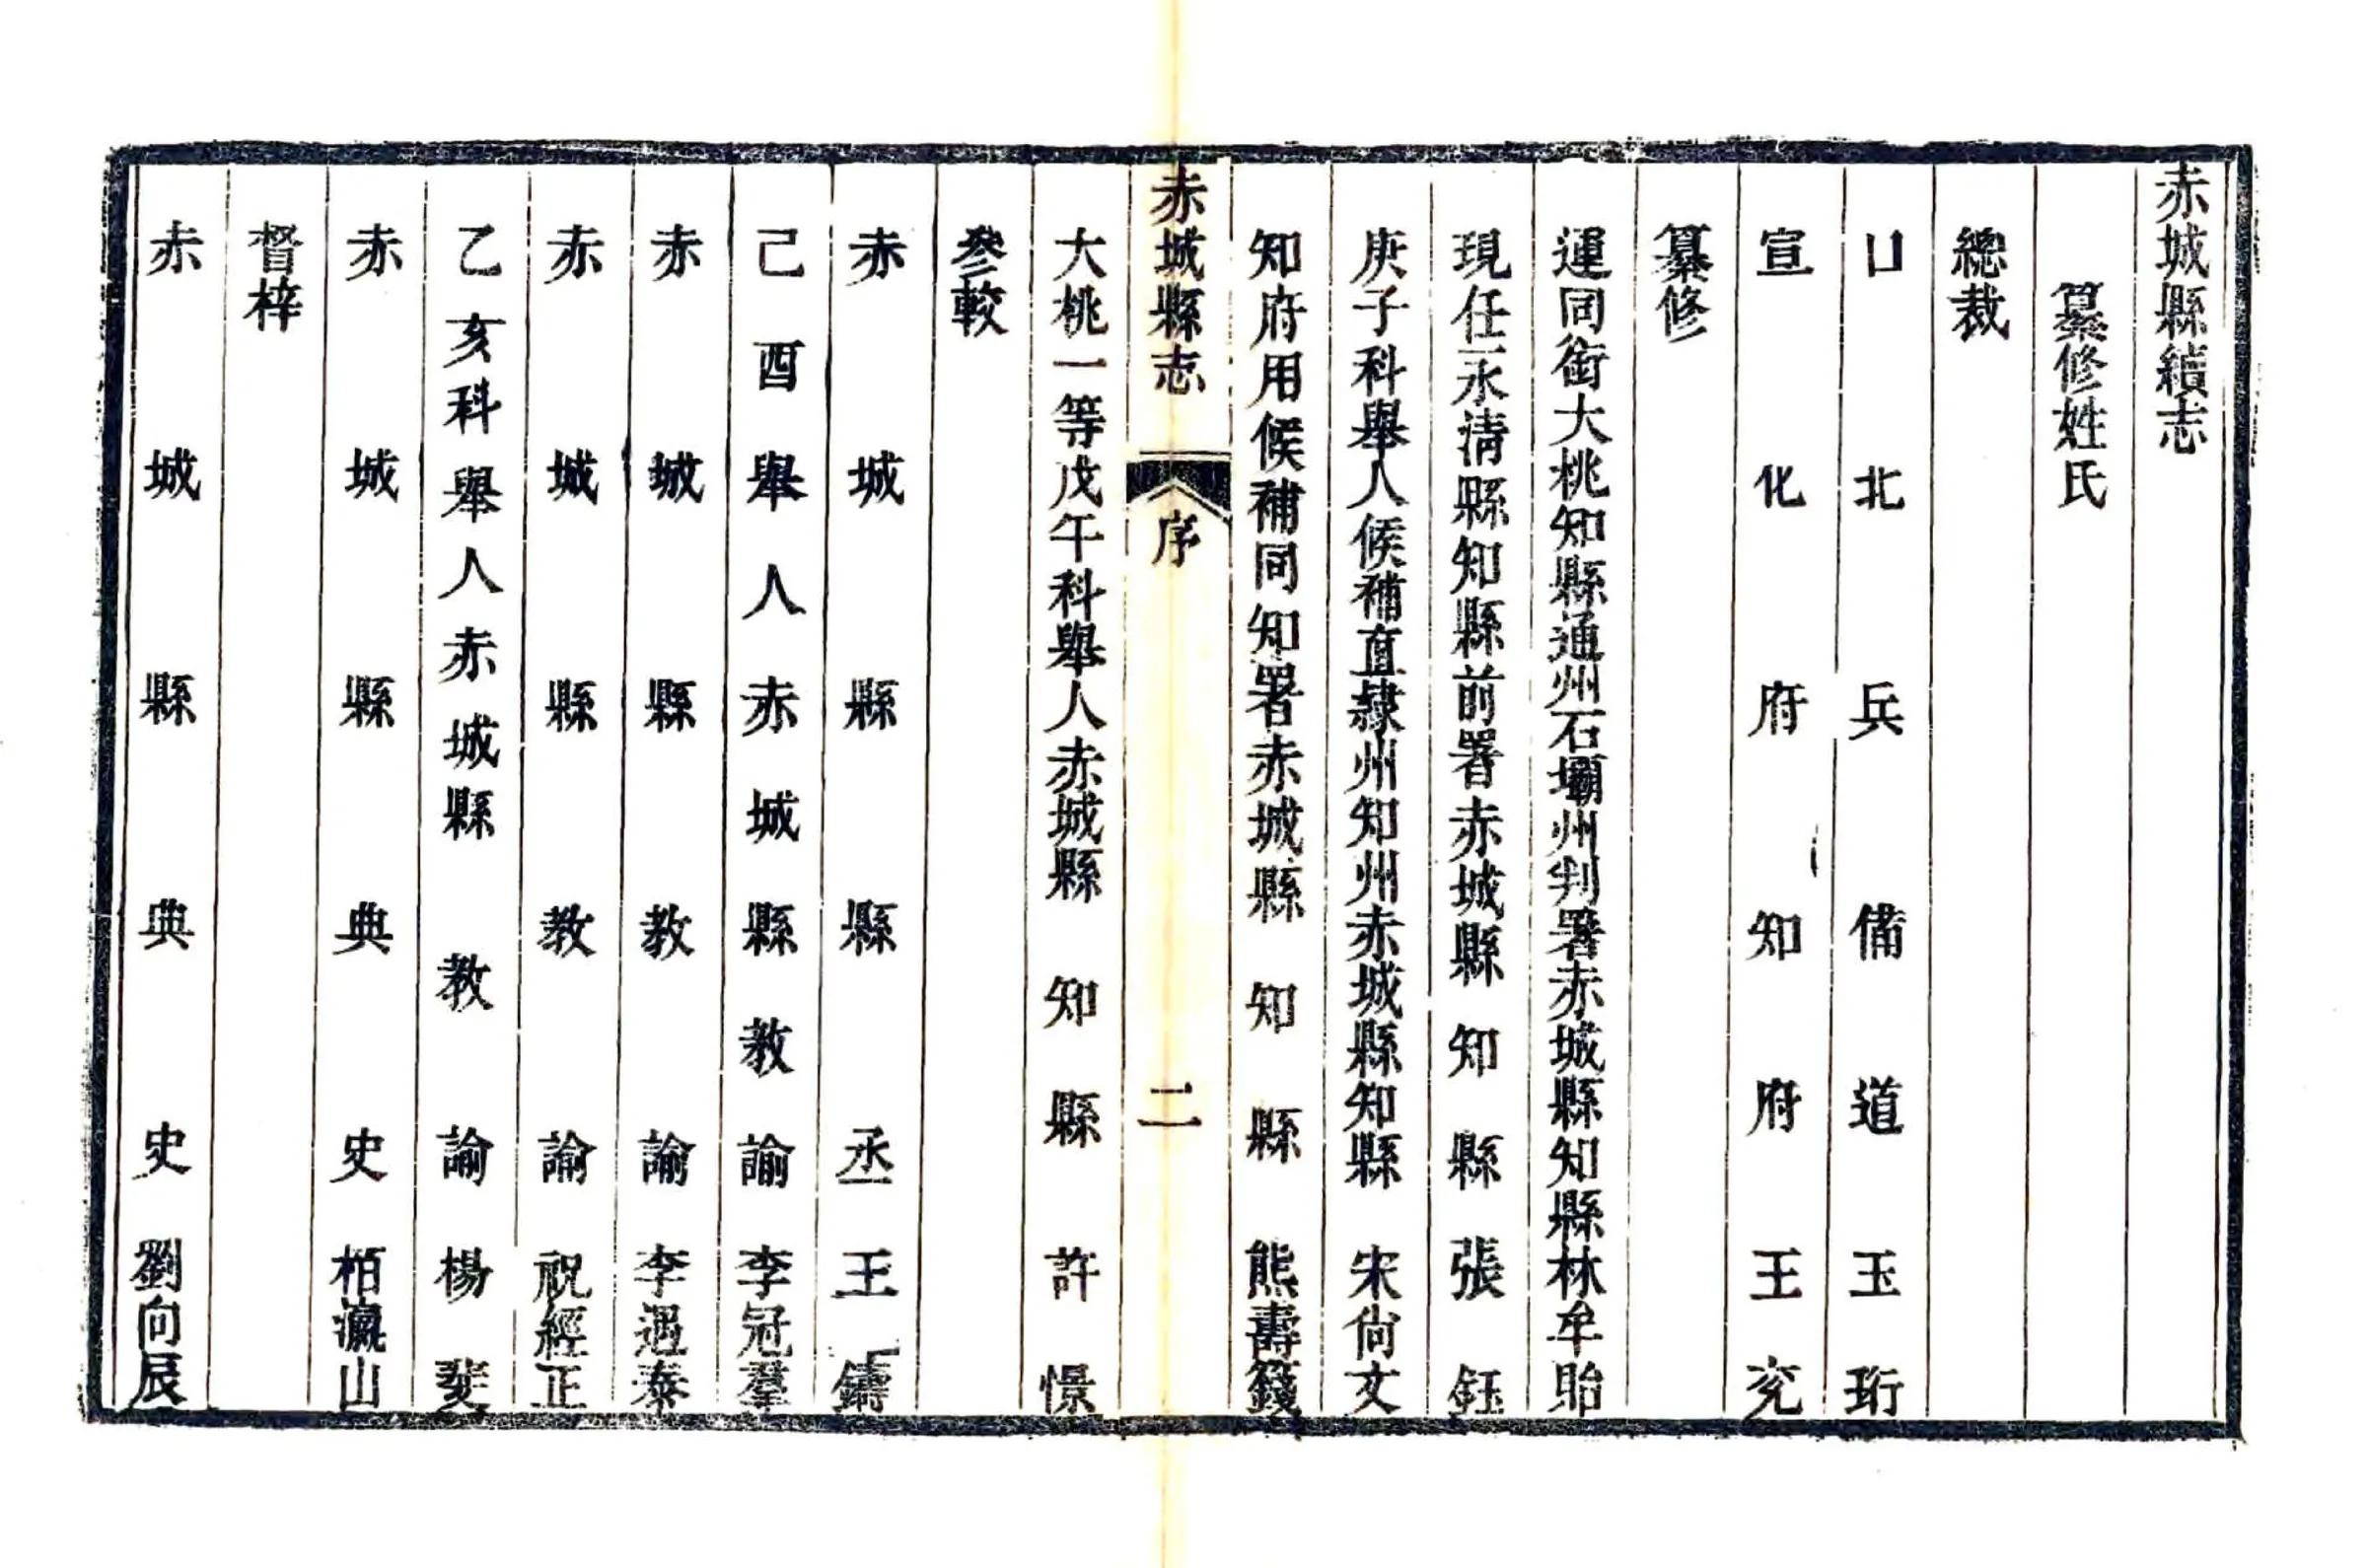 赤城縣續志
纂修姓氏
總裁
口北兵備道玉珩
宣化府知府王兖
纂修
運同銜大桃知縣通州石壩州判署赤城縣知縣林牟貽
現任永清縣知縣前署赤城縣知縣張鈺
庚子科舉人候補直隸州知州赤城縣知縣宋尙文
知府用候補同知署赤城縣知縣熊壽籛
大桃一等戊午科舉人赤城縣知縣許憬
赤城縣志 序 二
叅較
赤城縣縣丞王鑄
己酉舉人赤城縣教諭李冠羣
赤城縣教諭李遇泰
赤城縣教諭祝經正
乙亥科舉人赤城縣教諭楊斐
赤城縣典史柏瀛山
督梓
赤城縣典史劉向辰